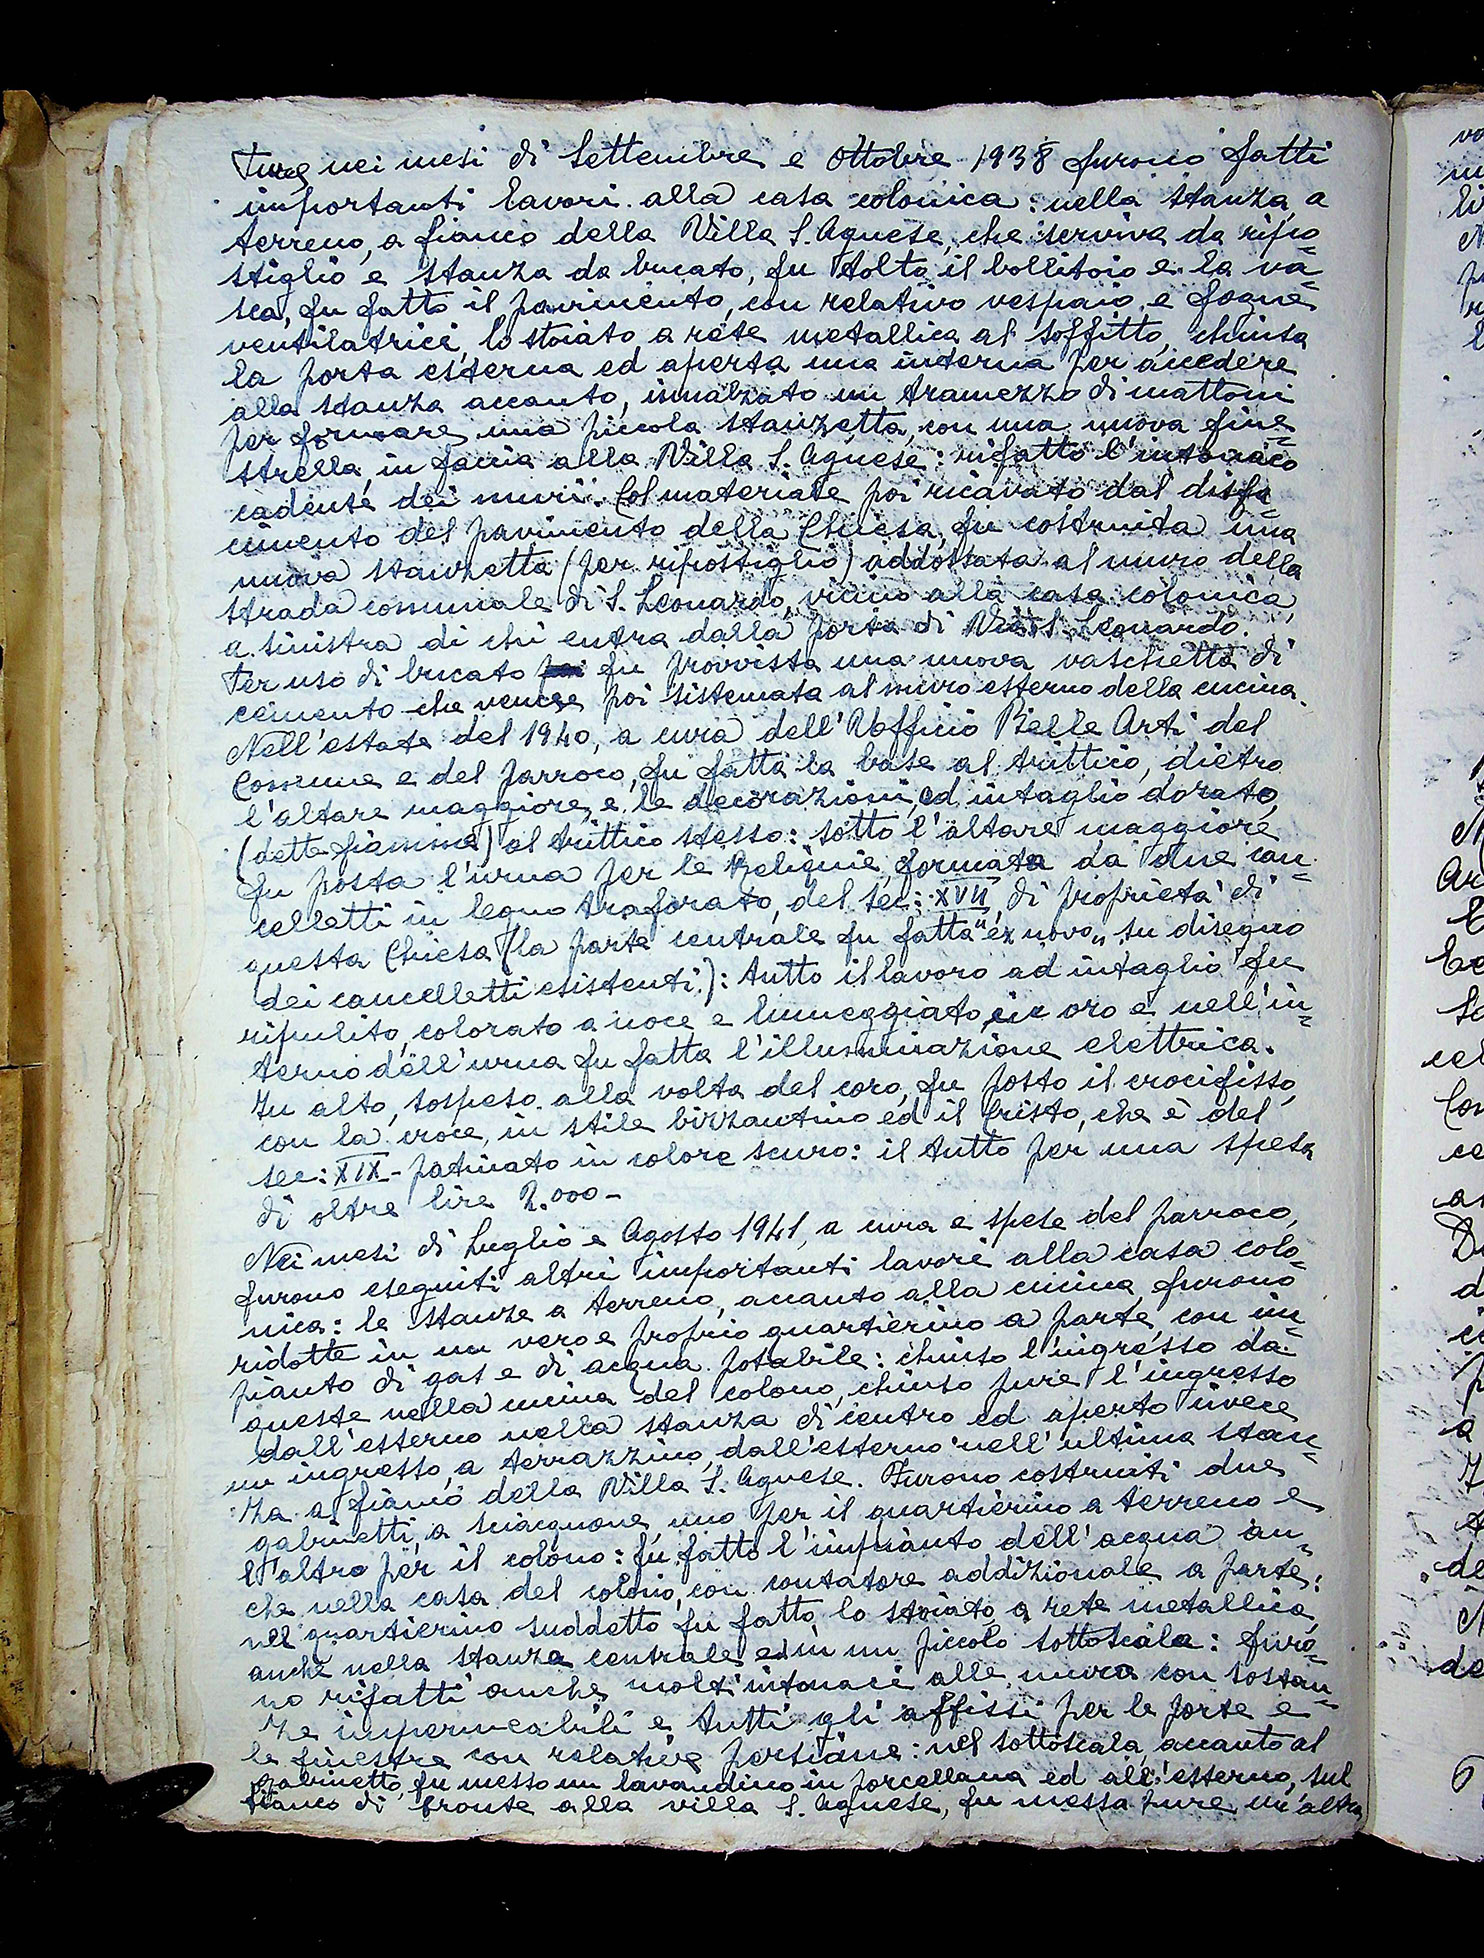 Pure nei mesi di Settembre e Ottobre 1938 furono fatti
importanti lavori alla casa colonica: nella stanza, a
terreno, a fianco della Villa S. Agnese, che serviva da ripo=
stiglio e stanza da bucato, fu tolto il bollitoio e la va=
sca, fu fatto il pavimento, con relativo vespaio e fogne
ventilatrici, lo stoiato a rete metallica al soffitto, chiusa
la porta esterna ed aperta una interna per accedere
alla stanza accanto, innalzato un tramezzo di mattoni
per formare una piccola stanzetta, con una nuova fine=
strella, in faccia alla Villa S. Agnese: rifatto l'intonaco
cadente dei muri. Col materiale poi ricavato dal disfa=
cimento del pavimento della Chiesa, fu costruita una
nuova stanzetta (per ripostiglio) addossata al muro della
strada comunale di S. Leonardo, vicino alla casa colonica,
a sinistra di chi entra dalla porta di Via S. Leonardo.
Per uso di bucato fu provvista una nuova vaschetta di
cemento che venne poi sistemata al muro esterno della cucina.
Nell'estate del 1940, a cura dell'Ufficio Belle Arti del
Comune e del parroco, fu fatta la base al trittico, dietro
l'altare maggiore, e le decorazioni, ad intaglio dorato,
(dette fiamme) al trittico stesso: sotto l'altare maggiore
fu posta l'urna per le Reliquie, formata da due can=
celletti in legno traforato, del sec: XVII, di proprietà di
questa Chiesa (la parte centrale fu fatta "ex novo" su disegno
dei cancelletti esistenti): tutto il lavoro ad intaglio fu
ripulito, colorato a noce e lumeggiato in oro e nell'in=
terno dell'urna fu fatta l'illuminazione elettrica.
In alto, sospeso alla volta del coro, fu posto il crocifisso,
con la croce, in stile bizzantino ed il Cristo, che è del
sec: XIX - patinato in colore scuro: il tutto per una spesa
di oltre lire 2.000 -
Nei mesi di Luglio e Agosto 1941, a cura e spese del parroco,
furono eseguiti altri importanti lavori alla casa colo=
nica: le stanze a terreno, accanto alla cucina, furono
ridotte in un vero e proprio quartierino a parte, con im=
pianto di gas e di acqua potabile: chiuso l'ingresso da
queste nella cucina del colono, chiuso pure l'ingresso
dall'esterno nella stanza di centro ed aperto invece
un ingresso, a terrazzino, dall'esterno nell'ultima stan=
za a fianco della Villa S. Agnese. Furono costruiti due
gabinetti, a sciacquone, uno per il quartierino a terreno e
l'altro per il colono: fu fatto l'impianto dell'acqua an=
che nella casa del colono, con contatore addizionale a parte:
nel quartierino suddetto fu fatto lo stoiato, a rete metallica,
anche nella stanza centrale ed in un piccolo sottoscala: furo=
no rifatti anche molti intonaci alle mura con sostan=
ze impermeabili e tutti gli affissi per le porte e
le finestre con relative persiane: nel sottoscala, accanto al
gabinetto, fu messo un lavandino in porcellana ed all'esterno, sul
fianco di fronte alla villa S. Agnese, fu messa pure un'altra